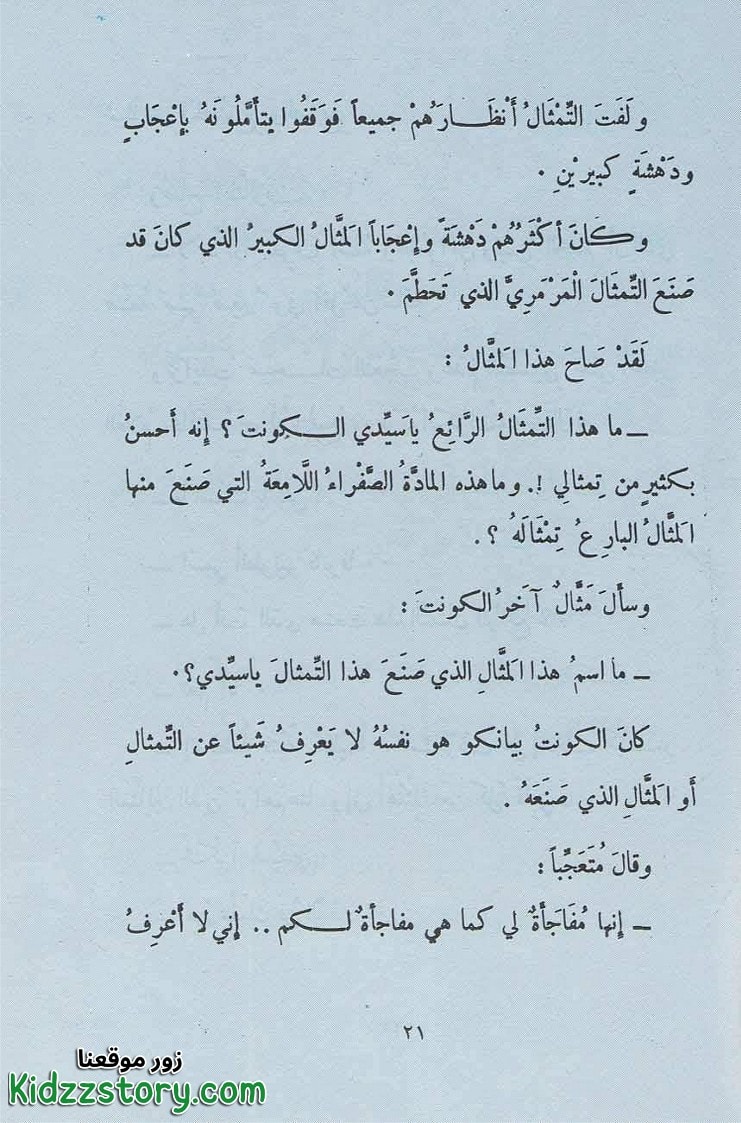 ولَفَتَ التِّمْثَالُ أَنْظَارَهُمْ جميعاً فَوَقَفُوا يتأَمَّلُونَهُ بإعْجَابٍ
ودَهْشَةٍ كبيرَيْنِ .
وكَانَ أكْثَرُهُمْ دَهْشَةً وإعْجَاباً المَثَّالُ الكبيرُ الذي كانَ قد
صَنَعَ التِّمثَالَ المَرْمَرِيَّ الذي تَحَطَّمَ .
لَقَدْ صَاحَ هذا المَثَّالُ :
ــ ما هذا التِّمثَالُ الرَّائِعُ ياسَيِّدي الكونتَ ؟ إنه أَحسنُ
بكثيرٍ من تِمثالِي !. وماهذه المادَّةُ الصَّفْراءُ اللَّامِعَةُ التي صَنَعَ منها
المَثَّالُ البارِعُ تِمْثَالَهُ ؟.
وسأَلَ مَثَّالٌ آخَرُ الكونتَ :
ــ ما اسمُ هذا المَثَّالِ الذي صَنَعَ هذا التِّمثالَ ياسيِّدي ؟.
كانَ الكونتُ بيانكو هو نفسُهُ لا يَعْرِفُ شَيئاً عن التِّمثالِ
أو المَثَّالِ الذي صَنَعَهُ .
وقالَ مُتَعَجِّباً :
ــ إنها مُفَاجَأَةٌ لي كما هي مفاجأةٌ لكم .. إني لا أَعْرِفُ
٢١
زور موقعنا
Kidzzstory.com